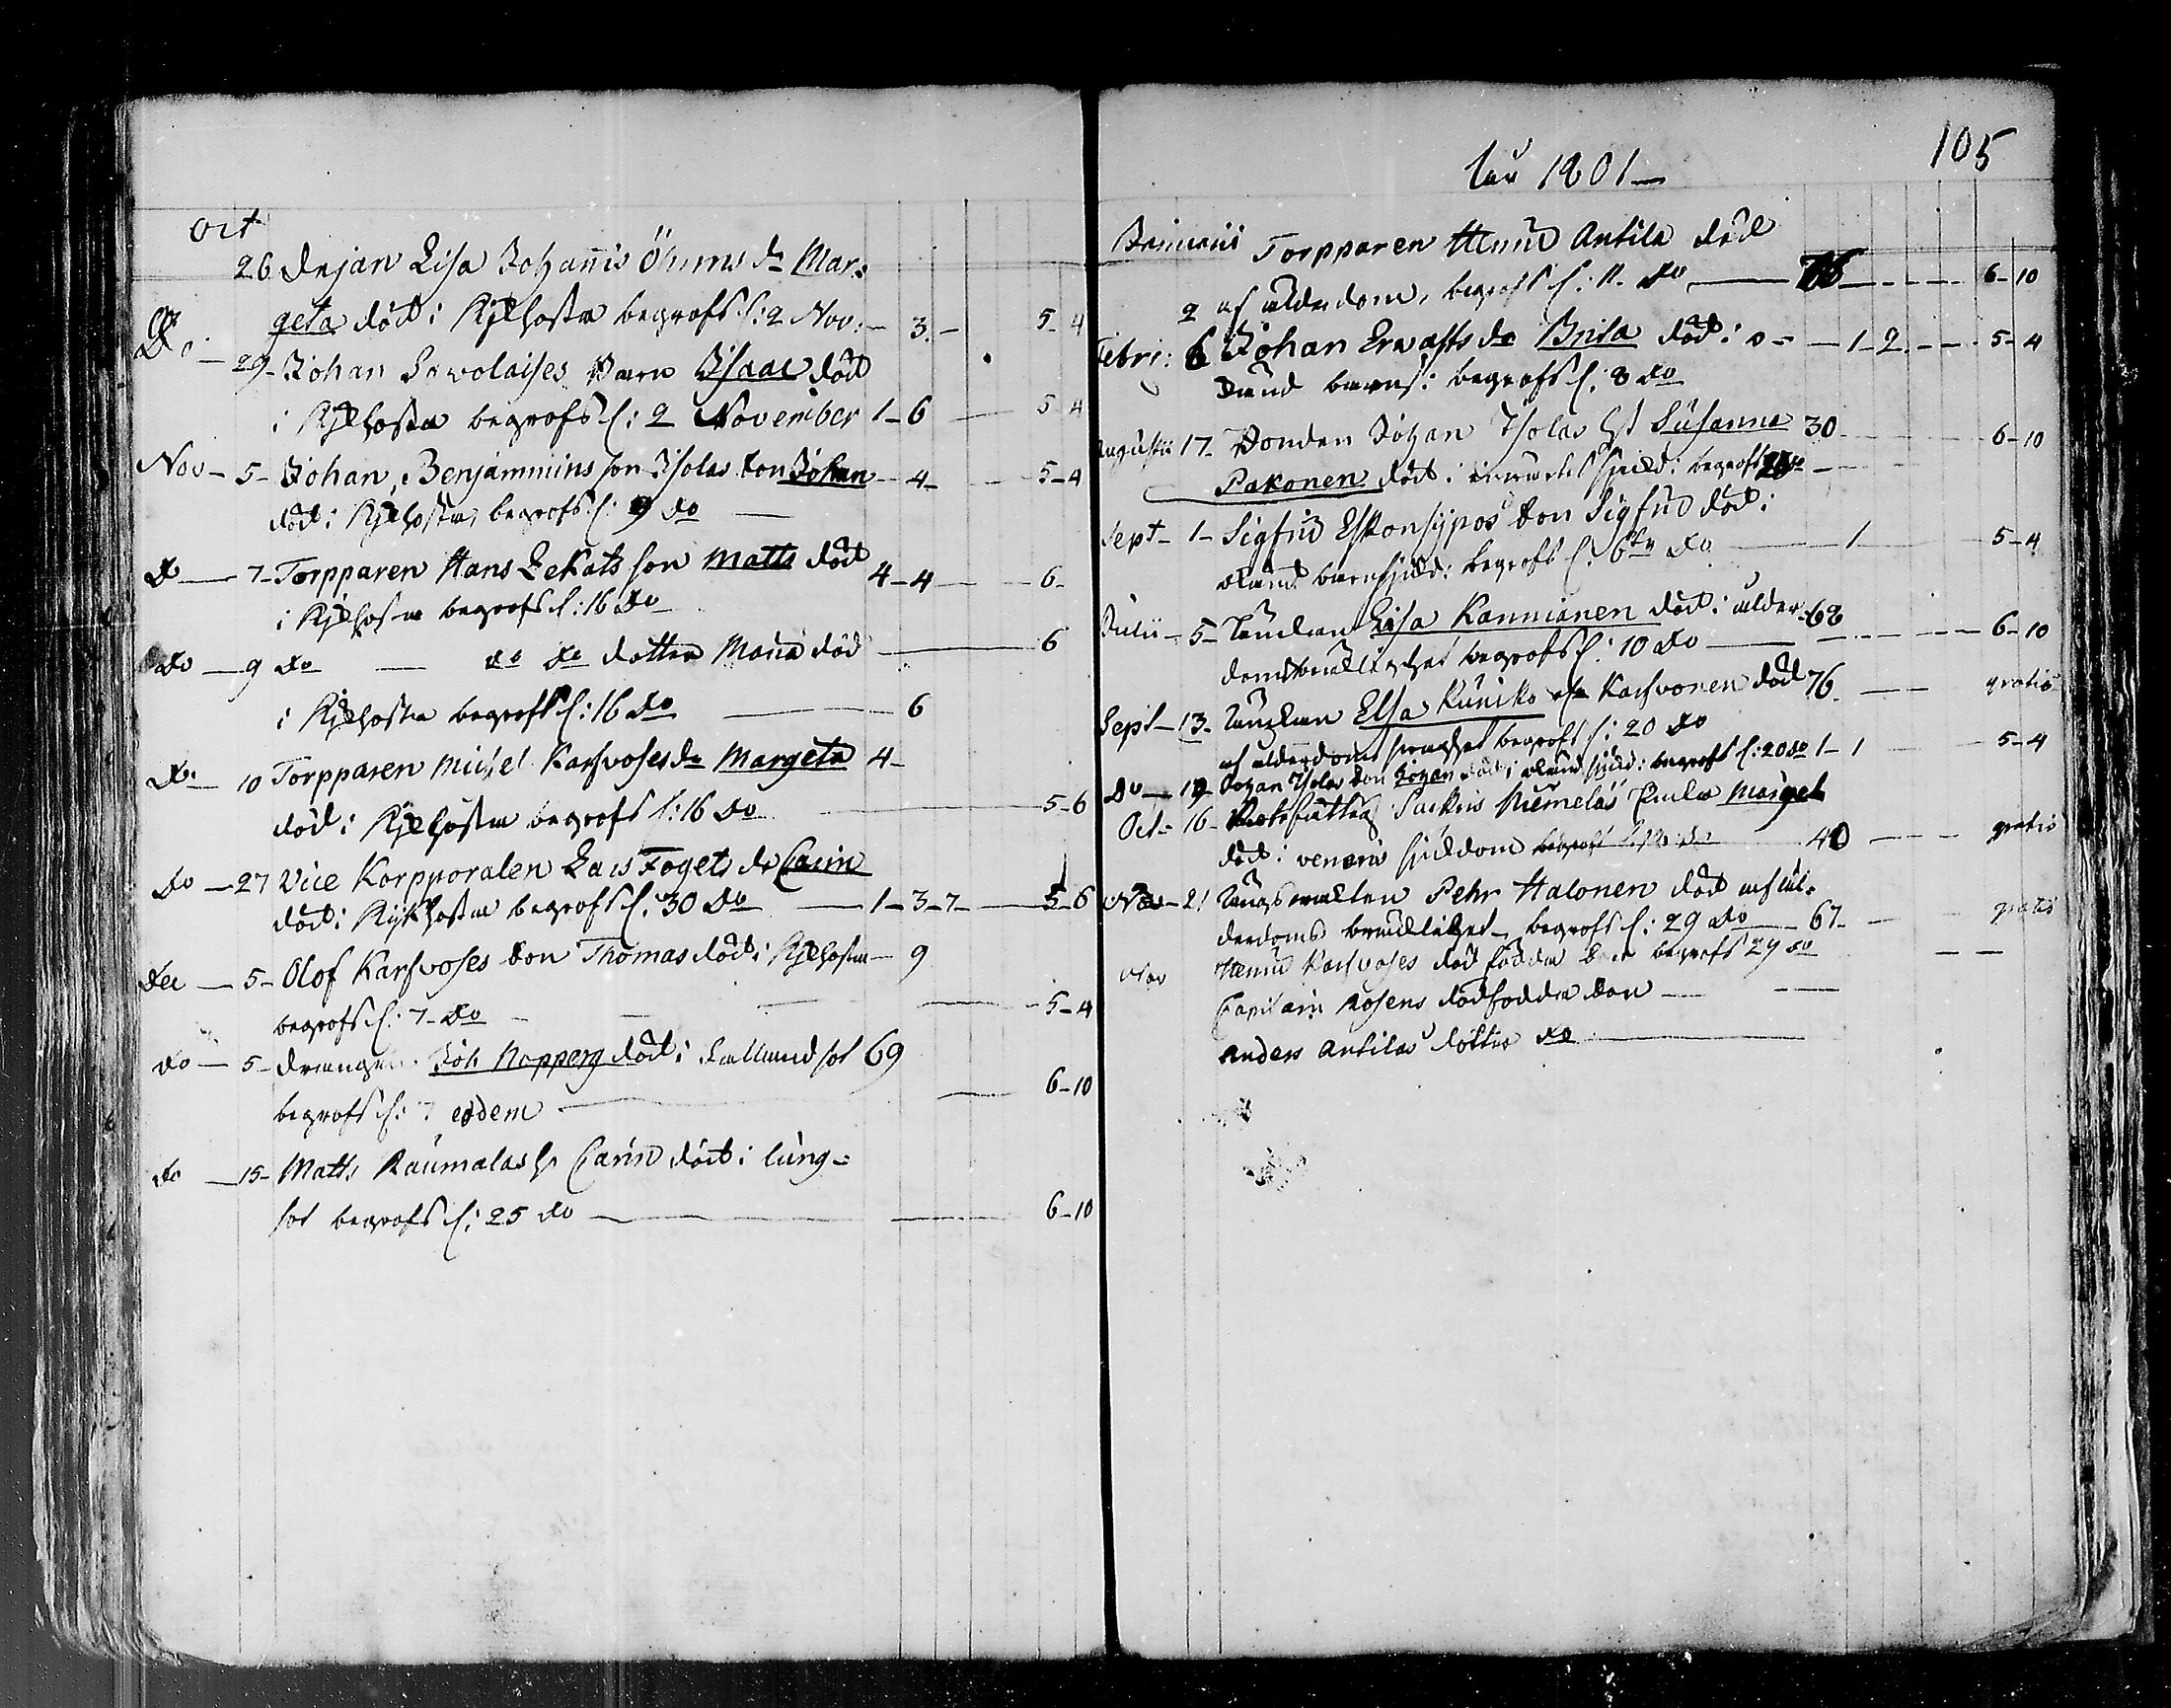 Oct
26 Pijan Lisa Johannis Öhmns dr Mar-
geta död i Kikhosta begrofs d: 2 Nov: — 3 — 5-4
Do — 29 — Johan Savolaises Barn Isaac död
i Kikhosta begrofs d: 2 November 1-6 — 5-4
Nov — 5 — Johan, Benjammins son Isolas son Johan — 4 — 5-4
död i Kikhosta, begrofs d: 9 do —
Do — 7 — Torpparen Hans Lekats son Matts död 4-4 — 6-
i Kikhosta begrofs d: 16 do
Do — 9 do — do do dotter Maria död — 6
i Kikhosta begrofs d: 16 do — 6
Do — 10 Torpparen Michel Karhvoses dr Margeta 4-
död i Kikhosta begrofs d: 16 do — 5-6
Do — 27 Vice Korpporalen Lars Fogets dr Carin
död i Kikhosta begrofs d. 30 do — 1-3-7 — 5-6
Dec — 5 — Olof Karhvoses son Thomas död i Kikhosta — 9
begrofs d: 7 do — 5-4
do — 5 — Drängen Joh Nopperg död i Fallandsot 69
begrofs d: 7 eodem — 6-10
do — 15 — Matts Raumalas h Carin död i lung-
sot begrofs d: 25 do — 6-10
105
1801
Januarii Torpparen Henric Antila död
2 af ålderdom, begrofs d: 11 do — 6-10
Febri: 6 Johan Erwasts dr Brita död i o- — 1-2 — 5-4
känd barns: begrofs d: 8 do
Augustii 17 — Bonden Johan Isolas hst Susanna 30 — 6-10
Pakonen död i invärtes sjukd: begrofs
Sept — 1 — Sigfrid Eskonsypos son Sigfrid död i
okänd barnsjukd: begrofs d. 6te do — 1 — 5-4
Julii — 5 — Enkan Lisa Kannianen död i ålder- 68
doms bräcklighet begrofs d: 10 do — 6-10
Sept — 13 — Enkan Elsa Kuniko Karhvonen död 76 — gratis
af ålderdoms svaghet begrofs d: 20 do
Do — 19 — Johan Isolas son Johan död i okänd sjukd: begrofs d: 20 do 1-1 — 5-4
Oct — 16 — Rotefattig Niemeläs Enka Marget
död i veneris sjukdom — 40 — gratis
Nov — 21 Pehr Halonen död af ål-
derdoms bräcklighet, begrofs d: 29 do — 67 — gratis
Nov Henric Karhvoses död födda begrofs 29 do
Capitain Rosens dödfödda son —
Anders Antilas dotter do —